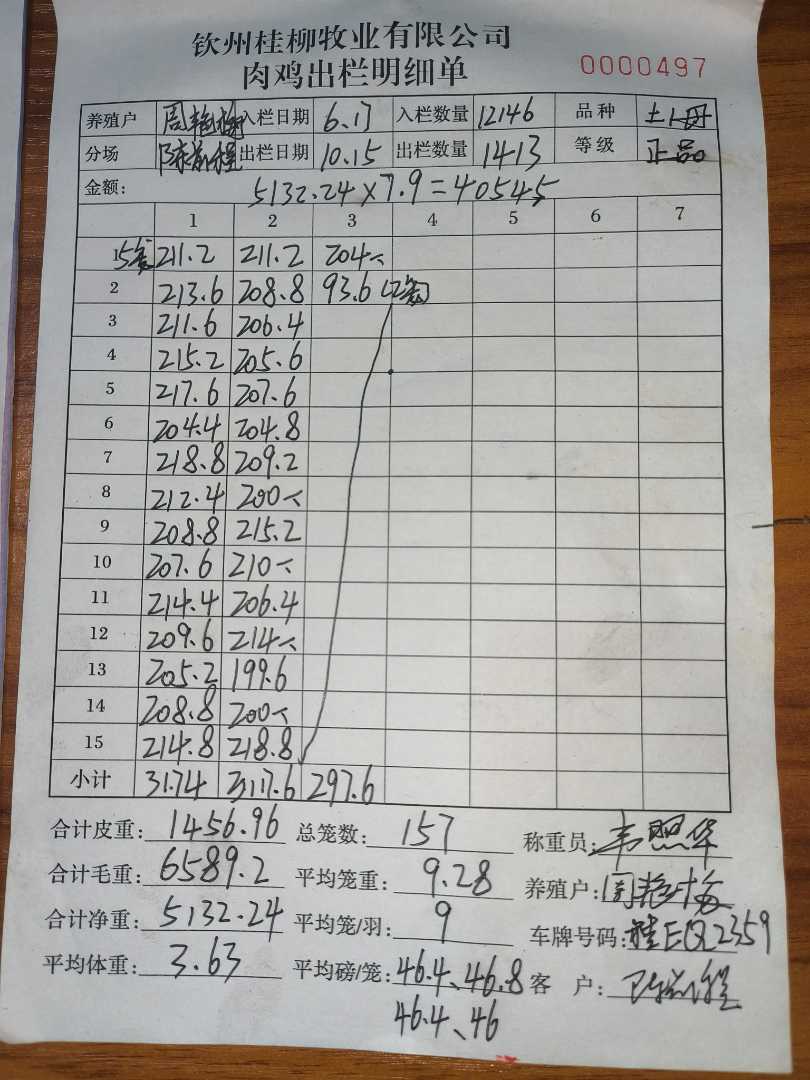 钦州桂柳牧业有限公司
肉鸡出栏明细单 0000497
养殖户 周艳梅 入栏日期 6.17 入栏数量 12146 品种 土1母
分场 出栏日期 10.15 出栏数量 1413 等级 正品
金额: 5132.24×7.9=40545
1 2 3 4 5 6 7
1 5笼 211.2 211.2 204
2 213.6 208.8 93.6 (2笼)
3 211.6 206.4
4 215.2 205.6
5 217.6 207.6
6 204.4 204.8
7 218.8 209.2
8 212.4 200
9 208.8 215.2
10 207.6 210
11 214.4 206.4
12 209.6 214
13 205.2 199.6
14 208.8 200
15 214.8 218.8
小计 3174 3117.6 297.6
合计皮重: 1456.96 总笼数: 157 称重员: 韦照华
合计毛重: 6589.2 平均笼重: 9.28 养殖户: 周艳梅
合计净重: 5132.24 平均笼/羽: 9 车牌号码: 桂EQ2359
平均体重: 3.63 平均磅/笼: 46.4、46.8 客户:
46.4、46